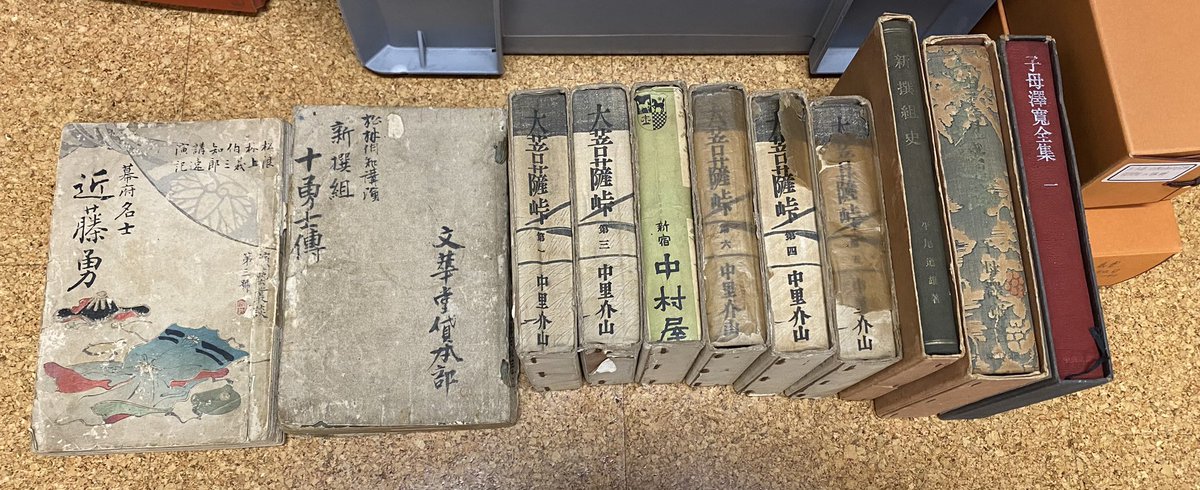 松林伯知講演
浪上義三郎速記
幕府名士
近藤勇
松林伯知講演
新撰組
十勇士傳
文華堂貸本部
大菩薩峠 第一 中里介山
大菩薩峠 第三 中里介山
新宿 中村屋
大菩薩峠 第六 中里介山
大菩薩峠 第四 中里介山
大菩薩峠 中里介山
新撰組史 平尾道雄著
子母澤寛全集 一